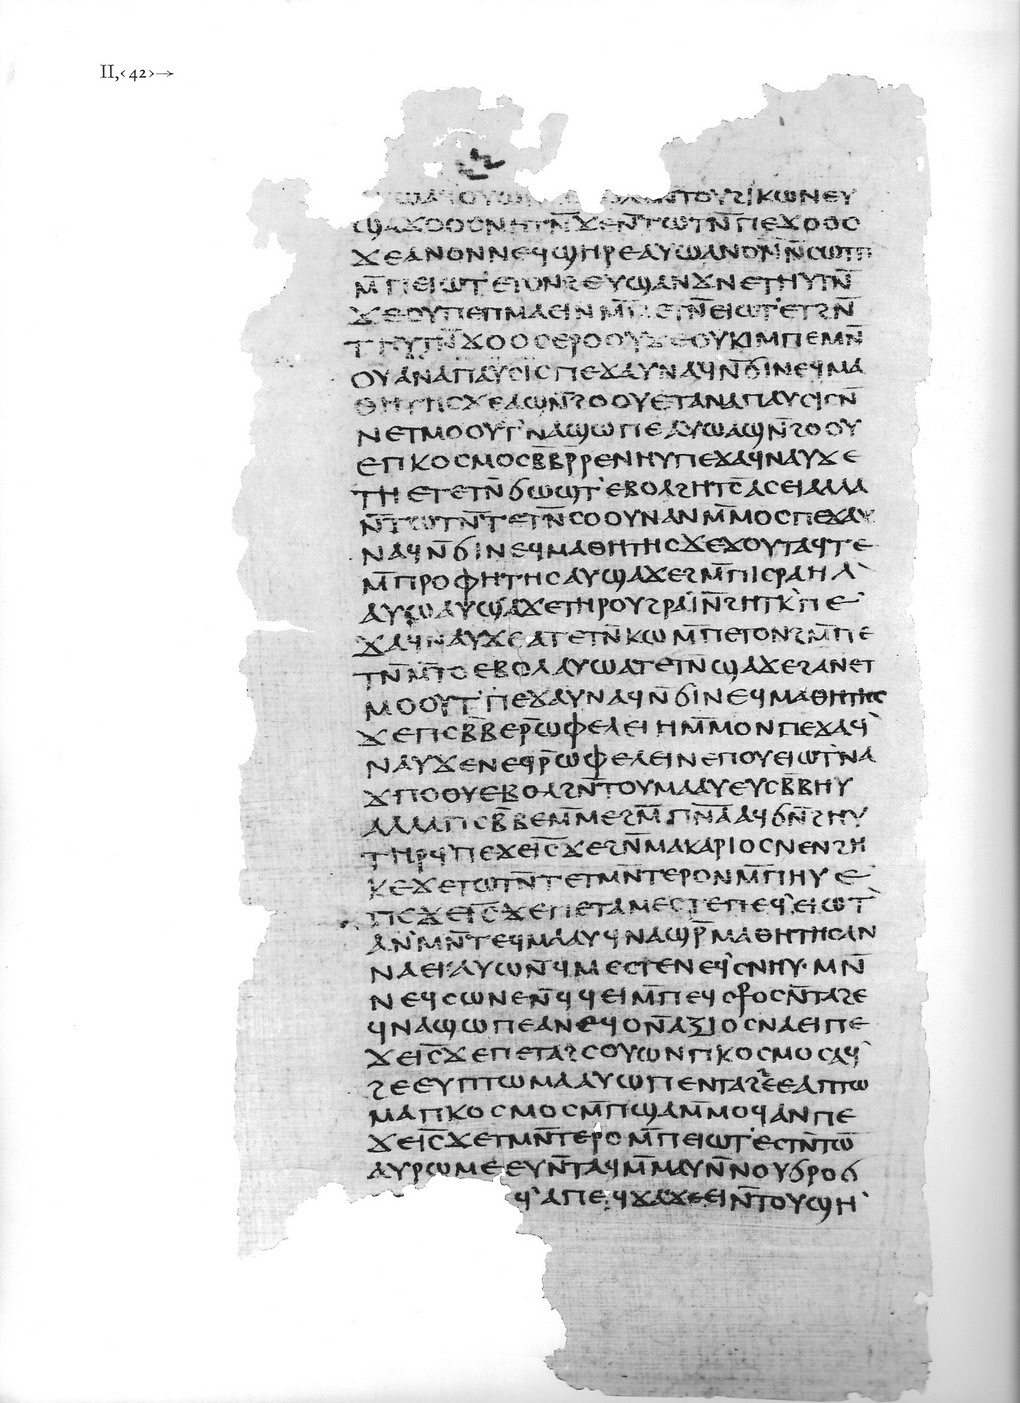 II,‹42›→
ⲟⲩⲱ ⲛⲧⲟⲩϩⲓⲕⲱⲛ ⲉⲩ
ϣⲁϫⲟⲟⲥ ⲛⲏⲧⲛ̄ ϫⲉ ⲛ̄ⲧⲱⲧⲛ̄ ⲡⲉ ϫⲟⲟⲥ
ϫⲉ ⲁⲛⲟⲛ ⲛⲉϥϣⲏⲣⲉ ⲁⲩⲱ ⲁⲛⲟⲛ ⲛ̄ⲥⲱⲧⲡ
ⲙ̄ⲡⲉⲓⲱⲧ ⲉⲧⲟⲛϩ ⲉⲩϣⲁⲛϫⲛⲉ ⲧⲏⲩⲧⲛ̄
ϫⲉ ⲟⲩ ⲡⲉ ⲡⲙⲁⲉⲓⲛ ⲙ̄ⲡⲉⲧⲛ̄ⲉⲓⲱⲧ ⲉⲧϩⲛ̄
ⲧⲏⲩⲧⲛ̄ ϫⲟⲟⲥ ⲉⲣⲟⲟⲩ ϫⲉ ⲟⲩⲕⲓⲙ ⲡⲉ ⲙⲛ̄
ⲟⲩⲁⲛⲁⲡⲁⲩⲥⲓⲥ ⲡⲉϫⲁⲩ ⲛⲁϥ ⲛ̄ϭⲓ ⲛⲉϥⲙⲁ
ⲑⲏⲧⲏⲥ ϫⲉ ⲁϣ ⲛ̄ϩⲟⲟⲩ ⲉⲧⲁⲛⲁⲡⲁⲩⲥⲓⲥ ⲛ̄
ⲛⲉⲧⲙⲟⲟⲩⲧ ⲛⲁϣⲱⲡⲉ ⲁⲩⲱ ⲁϣ ⲛ̄ϩⲟⲟⲩ
ⲉⲡⲕⲟⲥⲙⲟⲥ ⲃ̄ⲃ̄ⲣ̄ⲣⲉ ⲛⲏⲩ ⲡⲉϫⲁϥ ⲛⲁⲩ ϫⲉ
ⲧⲏ ⲉⲧⲉⲧⲛ̄ϭⲱϣⲧ ⲉⲃⲟⲗ ϩⲏⲧⲥ̄ ⲁⲥⲉⲓ ⲁⲗⲗⲁ
ⲛ̄ⲧⲱⲧⲛ̄ ⲧⲉⲧⲛ̄ⲥⲟⲟⲩⲛ ⲁⲛ ⲙ̄ⲙⲟⲥ ⲡⲉϫⲁⲩ
ⲛⲁϥ ⲛ̄ϭⲓ ⲛⲉϥⲙⲁⲑⲏⲧⲏⲥ ϫⲉ ϫⲟⲩⲧⲁϥⲧⲉ
ⲙ̄ⲡⲣⲟⲫⲏⲧⲏⲥ ⲁⲩϣⲁϫⲉ ϩⲙ̄ ⲡⲓⲥⲣⲁⲏⲗ
ⲁⲩⲱ ⲁⲩϣⲁϫⲉ ⲧⲏⲣⲟⲩ ϩⲣⲁⲓ̈ ⲛ̄ϩⲏⲧⲕ ⲡⲉ
ϫⲁϥ ⲛⲁⲩ ϫⲉ ⲁⲧⲉⲧⲛ̄ⲕⲱ ⲙ̄ⲡⲉⲧⲟⲛϩ ⲙ̄ⲡⲉ
ⲧⲛ̄ⲙ̄ⲧⲟ ⲉⲃⲟⲗ ⲁⲩⲱ ⲁⲧⲉⲧⲛ̄ϣⲁϫⲉ ϩⲁ ⲛⲉⲧ
ⲙⲟⲟⲩⲧ ⲡⲉϫⲁⲩ ⲛⲁϥ ⲛ̄ϭⲓ ⲛⲉϥⲙⲁⲑⲏⲧⲏⲥ
ϫⲉ ⲡⲥⲃ̄ⲃⲉ ⲣ̄ⲱⲫⲉⲗⲉⲓ ⲏ ⲙ̄ⲙⲟⲛ ⲡⲉϫⲁϥ
ⲛⲁⲩ ϫⲉ ⲛⲉϥⲣ̄ⲱⲫⲉⲗⲉⲓ ⲛⲉⲡⲟⲩⲉⲓⲱⲧ ⲛⲁ
ϫⲡⲟⲟⲩ ⲉⲃⲟⲗ ϩⲛ̄ ⲧⲟⲩⲙⲁⲁⲩ ⲉⲩⲥⲃ̄ⲃⲏⲩ
ⲁⲗⲗⲁ ⲡⲥⲃ̄ⲃⲉ ⲙ̄ⲙⲉ ϩⲙ̄ ⲡⲛ̄ⲁ̄ ⲁϥϭⲛ̄ ϩⲏⲩ
ⲧⲏⲣϥ ⲡⲉϫⲉ ⲓ̄ⲥ̄ ϫⲉ ϩⲛ̄ⲙⲁⲕⲁⲣⲓⲟⲥ ⲛⲉ ⲛϩⲏ
ⲕⲉ ϫⲉ ⲧⲱⲧⲛ̄ ⲧⲉ ⲧⲙⲛ̄ⲧⲉⲣⲟ ⲛⲙ̄ⲡⲏⲩⲉ
ⲡⲉϫⲉ ⲓ̄ⲥ̄ ϫⲉ ⲡⲉⲧⲁⲙⲉⲥⲧⲉ ⲡⲉϥⲉⲓⲱⲧ
ⲁⲛ ⲙⲛ̄ ⲧⲉϥⲙⲁⲁⲩ ϥⲛⲁϣⲣ̄ ⲙⲁⲑⲏⲧⲏⲥ ⲁⲛ
ⲛⲁⲉⲓ ⲁⲩⲱ ⲛ̄ϥⲙⲉⲥⲧⲉ ⲛⲉϥⲥⲛⲏⲩ· ⲙⲛ̄
ⲛⲉϥⲥⲱⲛⲉ ⲛ̄ϥϥⲉⲓ ⲙ̄ⲡⲉϥⲥ⳨ⲟⲥ ⲛ̄ⲧⲁϩⲉ
ϥⲛⲁϣⲱⲡⲉ ⲁⲛ ⲉϥⲟ ⲛ̄ⲁⲝⲓⲟⲥ ⲛⲁⲉⲓ ⲡⲉ
ϫⲉ ⲓ̄ⲥ̄ ϫⲉ ⲡⲉⲧⲁϩⲥⲟⲩⲱⲛ ⲡⲕⲟⲥⲙⲟⲥ ⲁϥ
ϩⲉ ⲉⲩⲡⲧⲱⲙⲁ ⲁⲩⲱ ⲡⲉⲛⲧⲁϩϩⲉ ⲉⲁⲡⲧⲱ
ⲙⲁ ⲡⲕⲟⲥⲙⲟⲥ ⲙ̄ⲡϣⲁ ⲙ̄ⲙⲟϥ ⲁⲛ ⲡⲉ
ϫⲉ ⲓ̄ⲥ̄ ϫⲉ ⲧⲙⲛ̄ⲧⲉⲣⲟ ⲙ̄ⲡⲉⲓⲱⲧ ⲉⲥⲧⲛ̄ⲧⲱ
ⲁⲩⲣⲱⲙⲉ ⲉⲩⲛ̄ⲧⲁϥ ⲙ̄ⲙⲁⲩ ⲛ̄ⲛⲟⲩϭⲣⲟϭ
ϥ ⲁⲡⲉϥϫⲁϫⲉ ⲉⲓ ⲛ̄ⲧⲟⲩϣⲏ